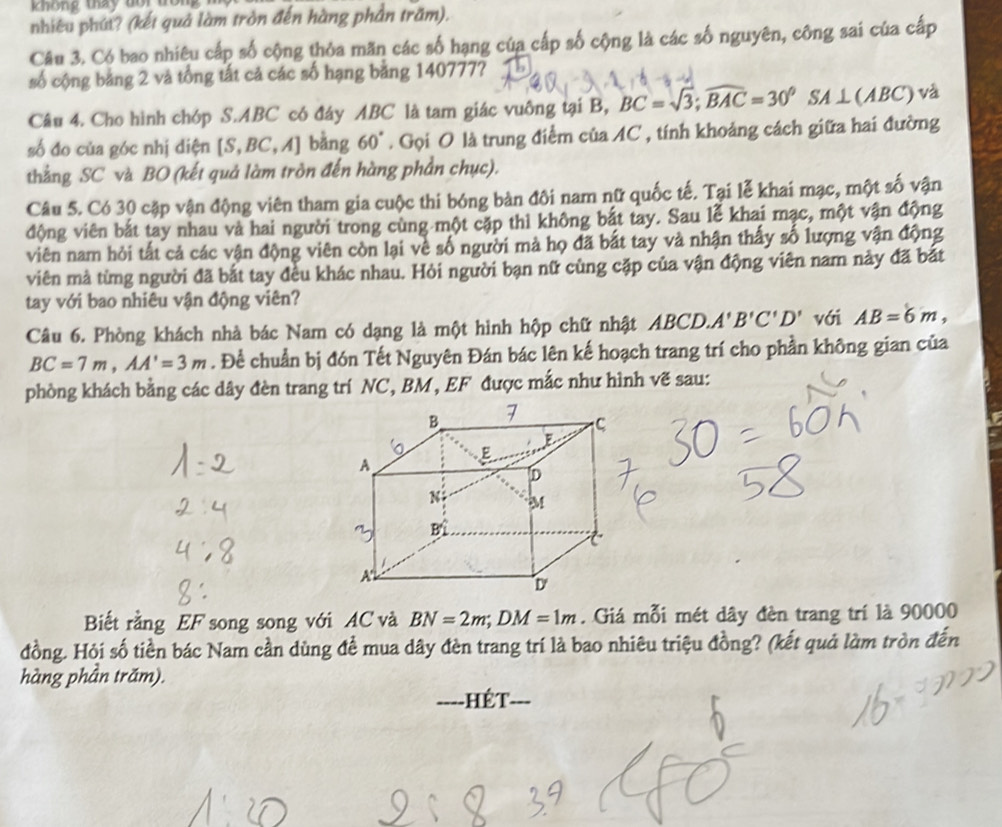 nhiêu phút? (kết quả làm tròn đến hàng phần trăm).
Câu 3. Có bao nhiêu cấp số cộng thỏa mãn các số hạng của cấp số cộng là các số nguyên, công sai của cấp
số cộng bằng 2 và tổng tất cả các số hạng bằng 140777?
Câu 4. Cho hình chóp S.ABC có đáy ABC là tam giác vuông tại B, BC = √3; BAC = 30⁰ SA ⊥ (ABC) và
số đo của góc nhị diện [S, BC, A] bằng 60°. Gọi O là trung điểm của AC, tính khoảng cách giữa hai đường
thẳng SC và BO (kết quả làm tròn đến hàng phần chục).
Câu 5. Có 30 cặp vận động viên tham gia cuộc thi bóng bàn đôi nam nữ quốc tế. Tại lễ khai mạc, một số vận
động viên bắt tay nhau và hai người trong cùng một cặp thì không bắt tay. Sau lễ khai mạc, một vận động
viên nam hỏi tất cả các vận động viên còn lại về số người mà họ đã bắt tay và nhận thấy số lượng vận động
viên mà từng người đã bắt tay đều khác nhau. Hỏi người bạn nữ cùng cặp của vận động viên nam này đã bắt
tay với bao nhiêu vận động viên?
Câu 6. Phòng khách nhà bác Nam có dạng là một hình hộp chữ nhật ABCD.A'B'C'D' với AB = 6 m,
BC = 7 m, AA' = 3 m. Để chuẩn bị đón Tết Nguyên Đán bác lên kế hoạch trang trí cho phần không gian của
phòng khách bằng các dây đèn trang trí NC, BM, EF được mắc như hình vẽ sau:
B 7 C
6 E F
A D
N M
3 B' C'
A' D'
1:2
2:4
4:8
8:
30 = 60n
7 6 58
Biết rằng EF song song với AC và BN = 2m; DM = 1m. Giá mỗi mét dây đèn trang trí là 90000
đồng. Hỏi số tiền bác Nam cần dùng để mua dây đèn trang trí là bao nhiêu triệu đồng? (kết quả làm tròn đến
hàng phần trăm).
----HẾT---
2:8 39